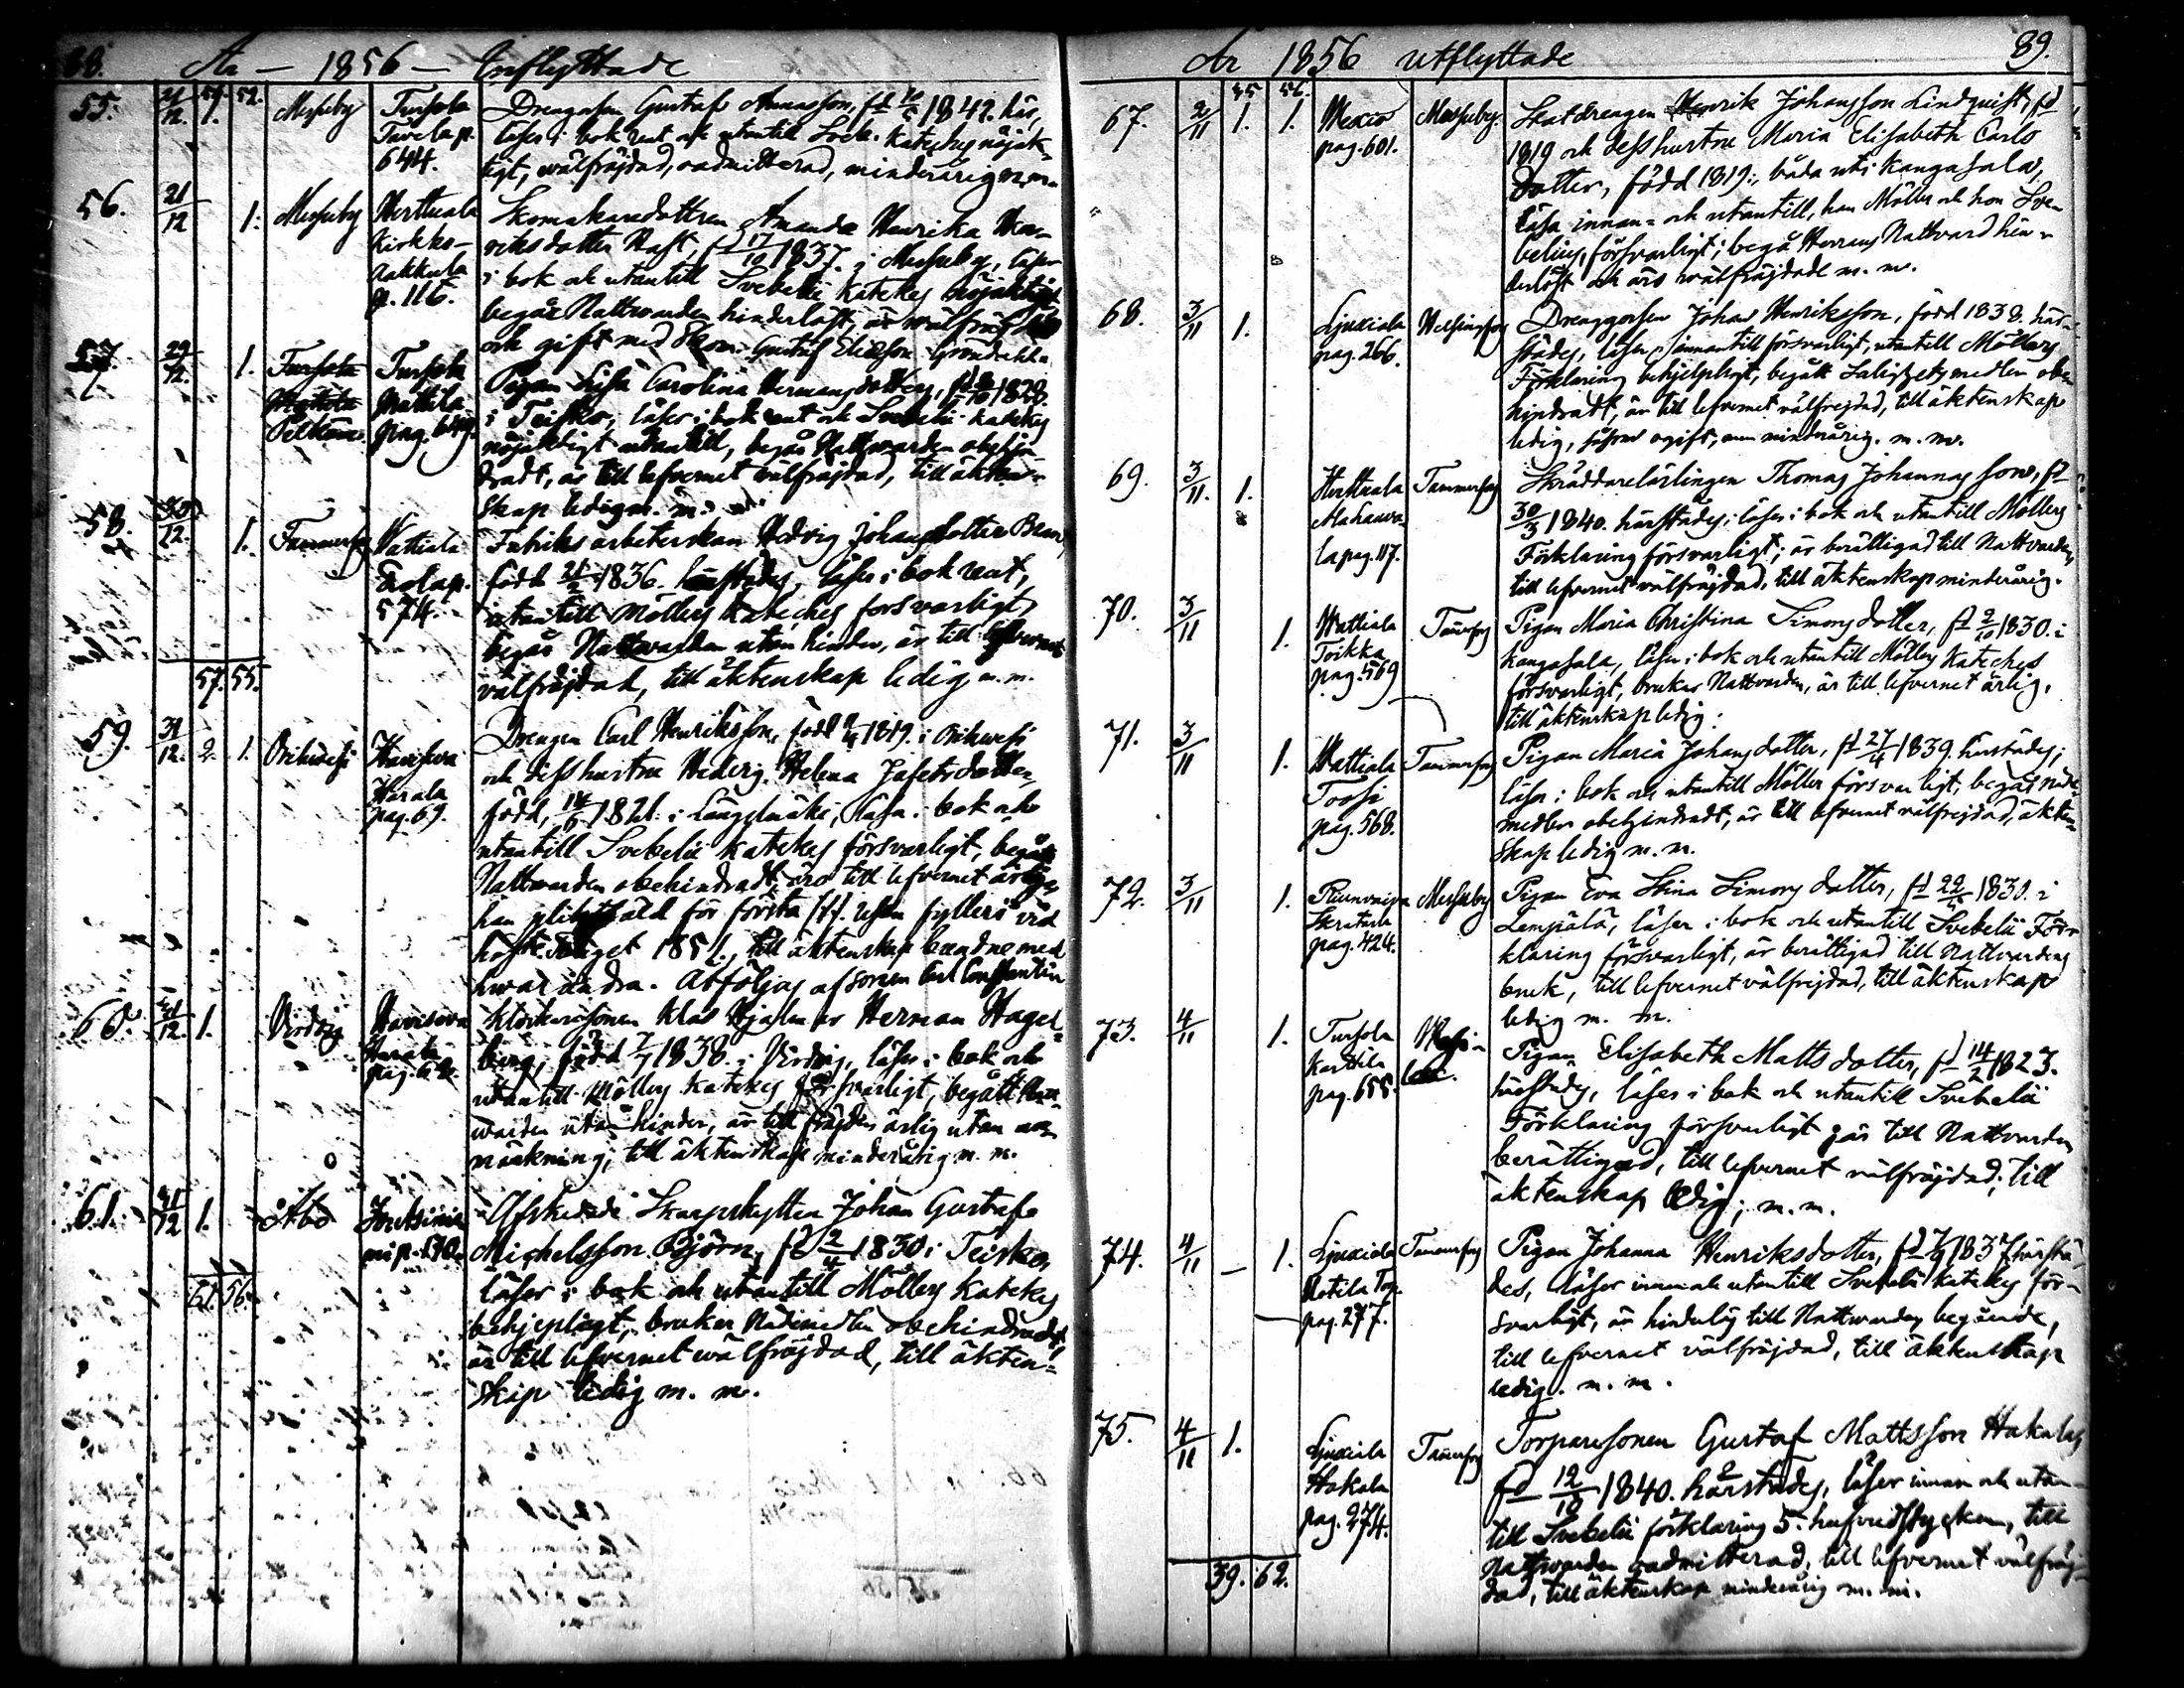 88.
År — 1856 — Inflyttade
55. 21/12. 1. Messuby Tursola
644.
Drengesen Gustaf
läser i bok rent och utantill Sveb. Kateches nöjak-
tigt, wälfräjdad, oadmitterad, minderårig m. m.
56. 21/12 1. Messuby
Kirkko-
p. 116.
Skomakaredottren Amanda Henrika Hen-
riksdotter fd 17/10 1837. i Messuby, läser
i bok och utantill Svebelii Kateches nöjaktigt
begår Nattwarden hinderlöst, är wälfräjdad
och gift med Skom. Gustaf Gröndahl.
57. 29/12. 1. Tursola
Mattila
pag. 649.
Pigan Lisa Carolina Hermansdotter,
i Teisko, läser i bok rent och Svebelii Kateches
nöjaktigt utantill, begår Nattwarden obehin
dradt, är till lefvernet wälfräjdad, till äkten-
skap ledig m. m.
58. 30/12. 1. Tammerfors Watiala
Erola p.
574.
Fabriks arbeterskan Hedvig Johansdotter
född 21/2 1836. härstädes, läser i bok rent,
utantill Möllers Kateches försvarligt,
begår Nattwarden utan hinder, är till lefvernet
välfräjdad, till äktenskap ledig m. m.
57. 55.
59. 31/12. 2. 1. Orihvesi Havisevä
Harala
pag. 69.
Drengen Carl Henriksson, född 1819. i Orihwesi
och dess hustru Hedvig Helena Jafetsdotter,
född, 14/6 1821. i Längelmäki, läsa i bok och
utantill Svebelii Kateches försvarligt, begått
Nattwarden obehindradt, äro till lefvernet ärliga
han för första
1851., till äktenskap bundne med
hwarandra. Åtföljas af sonen Carl Constantin
60. 31/12. 1. Virdois Havisevä
Harala
Klockaresonen Klas Hjalmar Herman Hagel-
berg, född 7/7 1838. i Virdois, läser i bok och
utantill Möllers Kateches försvarligt, begått Natt-
warden utan hinder, är till fräjden ärlig utan an-
märkning, till äktenskap minderårig m. m.
61. 31/12 1. Åbo
Afskedade Skarpskytten Johan Gustaf
Michelsson Björn, fd 2/4 1830 i Teisko,
läser i bok och utantill Möllers Kateches
behjelpligt, bruker Nådemedlen obehindradt
är till lefvernet wälfräjdad, till äkten-
skap ledig m. m.
61. 56.
År 1856 utflyttade
89.
35 56.
67. 2/11 1. 1. pag. 601. Messuby.
Skatdrengen Henrik Johansson Lindqvist, fd
1819 och dess hustru Maria Elisabeth Carls
dotter, född 1819., båda uti Kangasala,
läsa innan- och utantill, han Möller och hon Sve-
belius, försvarligt, begå Herrans Nattvard hin-
derlöst och äro wälfräjdade m. m.
68. 3/11 1. Ljuxiala
pag. 266. Helsingfors
Drenggossen Johan Henriksson, född 1838. här-
städes, läser innantill försvarligt, utantill Möllers
Förklaring behjelpligt, begått Salighetsmedlen obe-
hindradt, är till lefvernet välfrejdad, till äktenskap
ledig, såsom ogift, men minderårig. m. m.
69. 3/11. 1. Herttuala
la pag. 117. Tammerfors
Skräddarelärlingen Thomas Johannsson, fd
30/3 1840. härstädes, läser i bok och utantill Möllers
Förklaring försvarligt; är berättigad till Nattvarden,
till lefvernet välfräjdad, till äktenskap minderårig.
70. 3/11 1. Wattiala
Toikka
pag. 569 Tammerfors
Pigan Maria Christina Simonsdotter, fd 2/10 1830. i
Kangasala, läser i bok och utantill Möllers Kateches
försvarligt, brukar Nattvarden, är till lefvernet ärlig,
till äktenskap ledig.
71. 3/11 1. Wattiala
Toosi
pag. 568. Tammerfors
Pigan Maria Johansdotter, fd 27/4 1839. härstädes;
läser i bok och utantill Möller försvarligt, begår nåde
medlen obehindradt, är till lefvernet välfrejdad, äkten-
skap ledig m. m.
72. 3/11 1.
pag. 424. Messuby
Pigan Eva Stina Simonsdotter, fd 1830. i
Lempälä, läser i bok och utantill Svebelii För-
klaring försvarligt, är berättigad till Nattvardens
bruk, till lefvernet välfrejdad, till äktenskap
ledig m. m.
73. 4/11 1. Tursola
Karttila
pag. 655.
Pigan Elisabeth Mattsdotter, fd 14/2 1823.
härstädes, läser i bok och utantill Svebelii
Förklaring försvarligt går till Nattvarden
berättigad, till lefvernet välfräjdad, till
äktenskap ledig; m. m.
74. 4/11 — 1. Ljuxiala
pag. 277. Tammerfors
Pigan Johanna Henriksdotter, 1837 härstä-
des, läser innan och utantill Svebelii Kateches för-
svarligt, är hinderlös till Nattvardens begående,
till lefvernet välfräjdad, till äktenskap
ledig. m. m.
75. 4/11 1. Ljuxiala
Hakala
pag. 274. Tammerfors
Torparesonen Gustaf Mattsson Hakala,
fd 12/10 1840. härstädes, läser innan och utan-
till Svebelii förklaring 5. hufvudstycken, till
Nattwarden oadmitterad, till lefvernet välfräj-
dad, till äktenskap minderårig m. m.
39. 62.